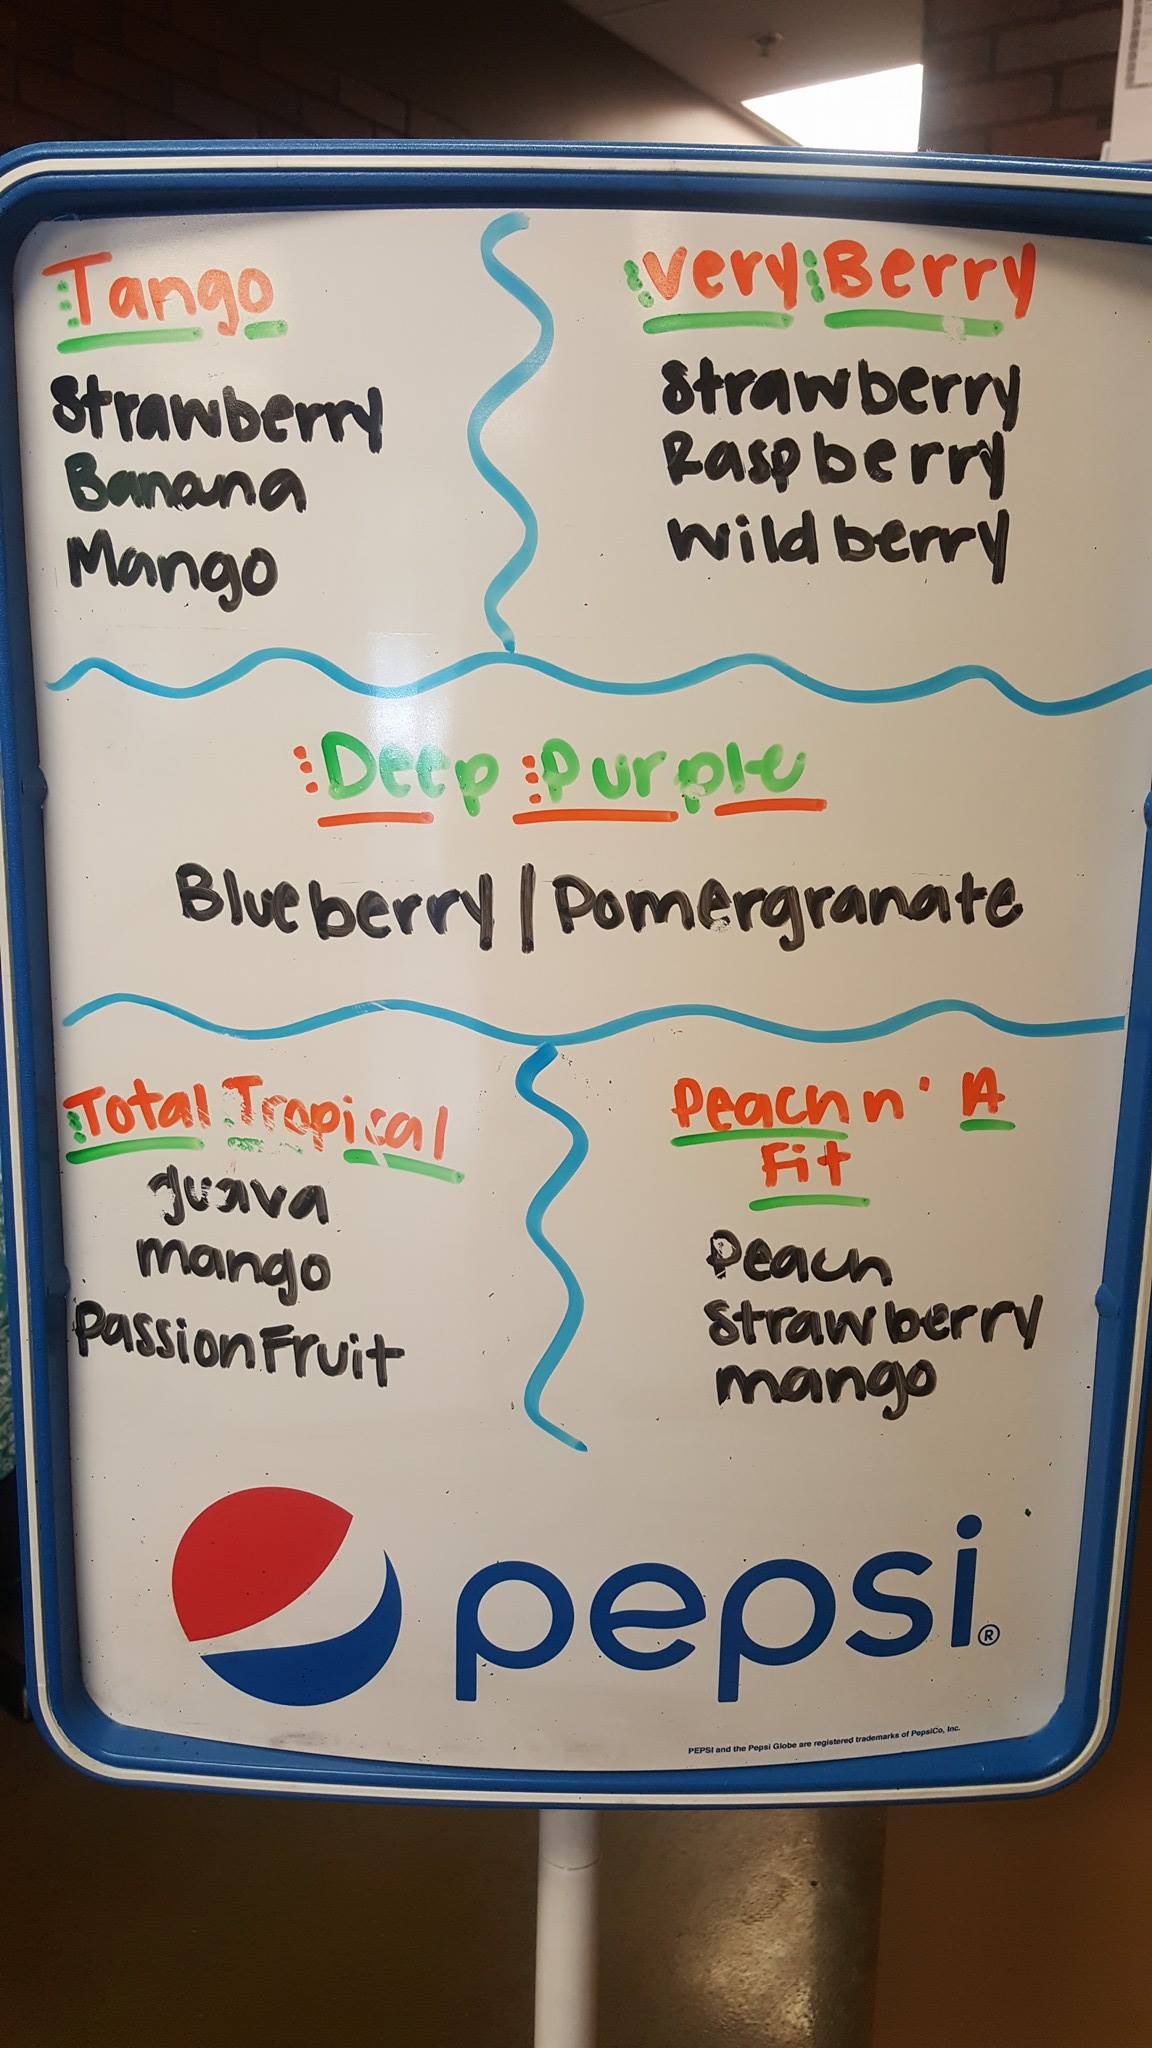 Tango
Strawberry
Banana
Mango
Very Berry
Strawberry
Raspberry
Wildberry
Deep Purple
Blueberry | Pomergranate
Total Tropical
guava
mango
PassionFruit
Peach n' A
Fit
Peach
Strawberry
mango
pepsi®
PEPSI and the Pepsi Globe are registered trademarks of PepsiCo, Inc.